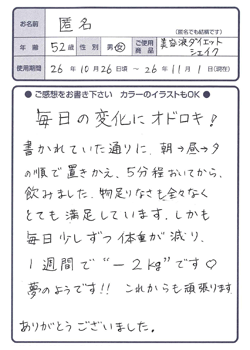 お名前 匿名
(匿名でも結構です)
年齢 52歳 性別 男・女 ご使用商品 美容液ダイエットシェイク
使用期間 26年10月26日頃 〜 26年11月1日(現在)
●ご感想をお書き下さい カラーのイラストもOK●
毎日の変化にオドロキ!
書かれていた通りに、朝→昼→夕
の順で置きかえ、5分程おいてから、
飲みました。物足りなさも全々なく
とても満足しています。しかも
毎日少しずつ体重が減り、
1週間で“−2kg”です♡
夢のようです!! これからも頑張ります
ありがとうございました。